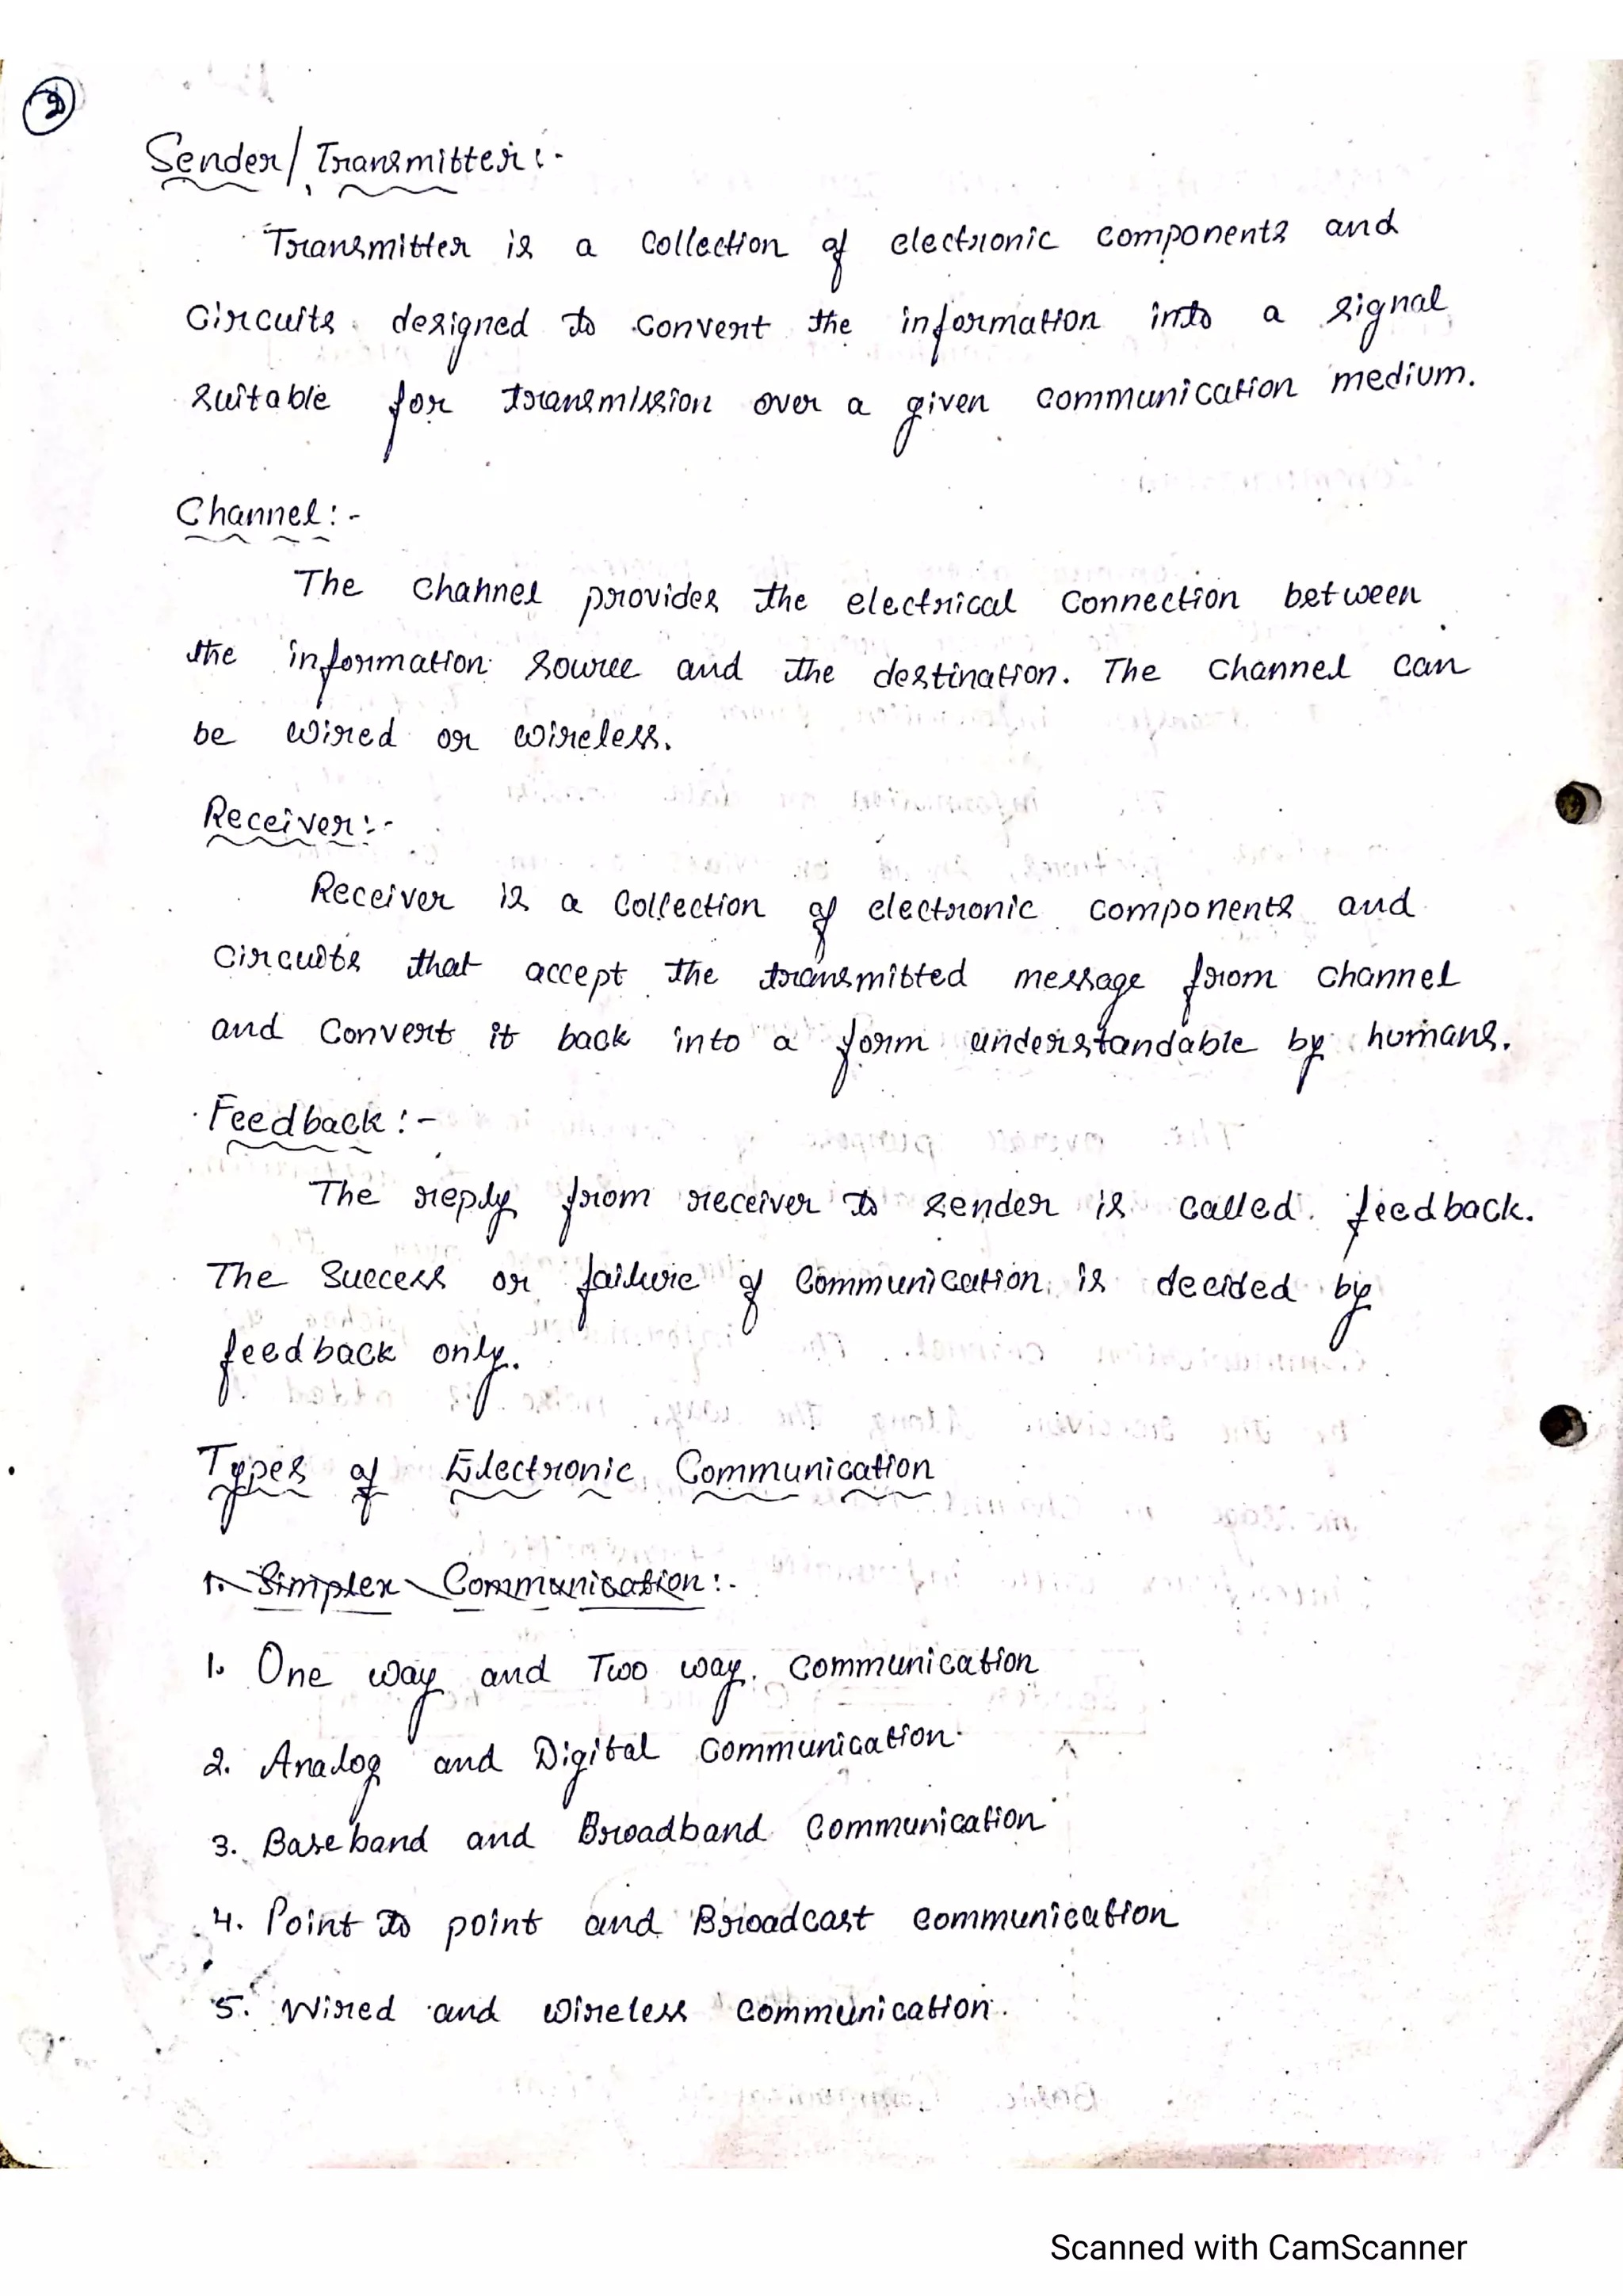 2
Sender/Transmitter:-
Transmitter is a collection of electronic components and
circuits designed to convert the information into a signal
suitable for transmission over a given communication medium.
Channel:-
The channel provides the electrical connection between
the information source and the destination. The channel can
be wired or wireless.
Receiver:-
Receiver is a collection of electronic components and
circuits that accept the transmitted message from channel
and convert it back into a form understandable by humans.
Feedback:-
The reply from receiver to sender is called feedback.
The success or failure of communication is decided by
feedback only.
Types of Electronic Communication
1. Simplex Communication:-
1. One way and Two way communication
2. Analog and Digital communication
3. Baseband and Broadband communication
4. Point to point and Broadcast communication
5. Wired and wireless communication.
Scanned with CamScanner